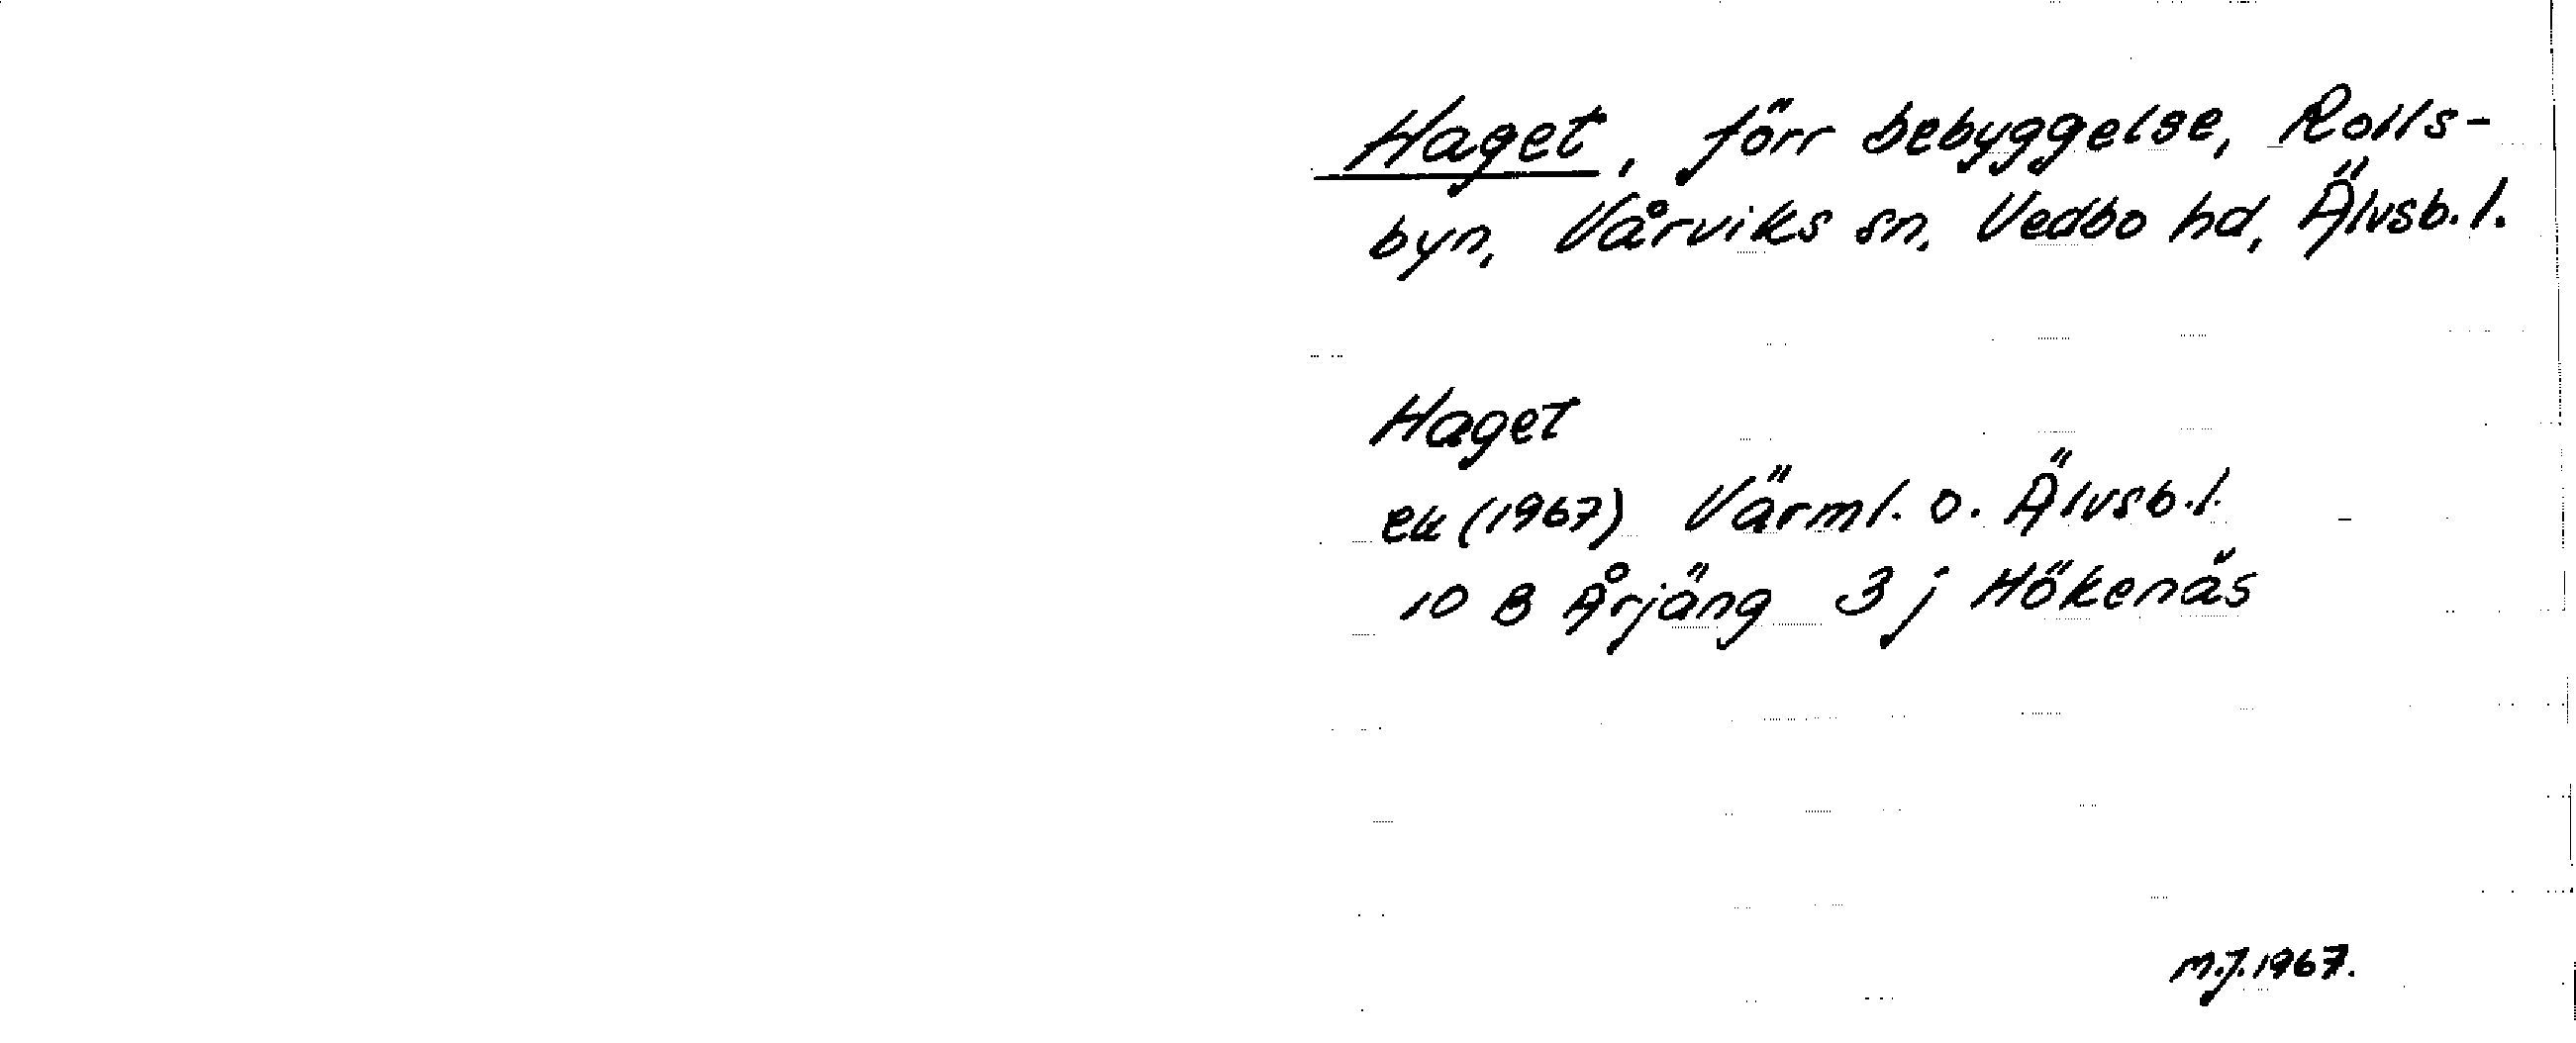 Haget, förr bebyggelse, Rolls-
byn, Vårviks sn, Vedbo hd, Älvsb. l.
Haget
ek (1967) Värml. o. Älvsb. l.
10 B Årjäng 3 j Hökenäs
M.J. 1967.